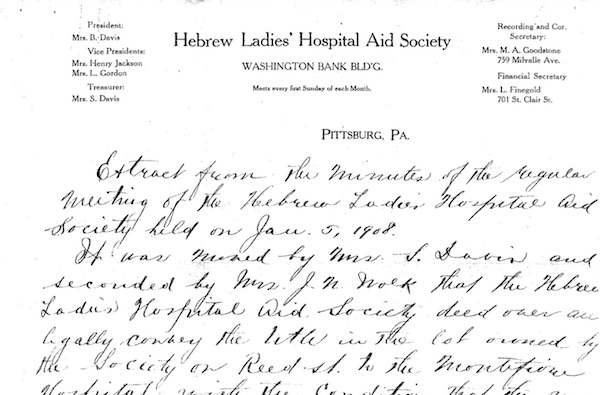 President:
Mrs. B. Davis
Vice Presidents:
Mrs. Henry Jackson
Mrs. L. Gordon
Treasurer:
Mrs. S. Davis
Hebrew Ladies' Hospital Aid Society
WASHINGTON BANK BLD'G.
Meets every first Sunday of each Month.
Recording and Cor.
Secretary:
Mrs. M. A. Goodstone
759 Milvalle Ave.
Financial Secretary
Mrs. L. Finegold
701 St. Clair St.
PITTSBURG, PA.
Extract from the minutes of the regular
meeting of the Hebrew Ladies Hospital Aid
Society held on Jan. 5, 1908.
It was moved by Mrs. S. Davis and
seconded by Mrs. J. N. Wolk that the Hebrew
Ladies Hospital Aid Society deed over an
legally convey the title in the lot owned by
the Society on Reed st. to the Montefiore
Hospital with the condition that the